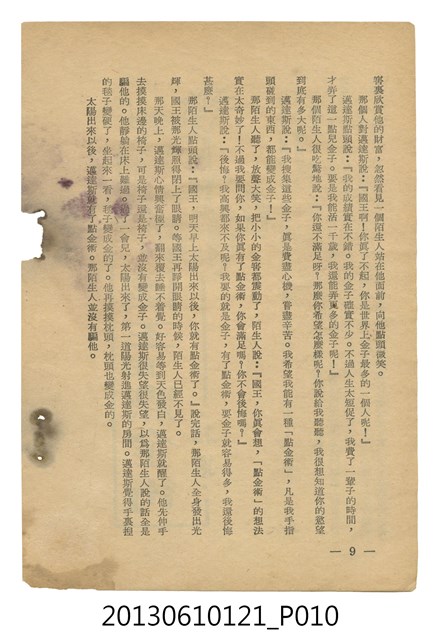 窖裏欣賞他的財富，忽然看見一個陌生人站在他面前，向他點頭微笑。
那個人對邁達斯說：『國王啊！你眞了不起，你是世界上金子最多的一個人呢！』
邁達斯點頭說：『我的成績實在不錯。我的金子確實不少。不過人生太短促了，我費了一輩子的時間，
才弄了這一點兒金子。要是我能活一千歲，我還能弄更多的金子呢！』
那個陌生人很吃驚地說：『你還不滿足呀？那麼你希望怎麼樣呢？你說給我聽聽，我很想知道你的慾望
到底有多大呢。』
邁達斯說：『我搜集這些金子，眞是費盡心機，嘗盡辛苦。我希望我能有一種「點金術」，凡是我手指
頭碰到的東西，都能變成金子！』
那陌生人聽了，放聲大笑，把小小的金窖都震動了，陌生人說：『國王，你眞會想，「點金術」的想法
實在太奇妙了！不過我要問你，如果你眞有了點金術，你會滿足嗎？你不會後悔嗎？』
邁達斯說：『後悔？我高興都來不及呢？我要的就是金子，有了點金術，要金子就容易得多，我還後悔
甚麼？』
那陌生人點頭說：『國王，明天早上太陽出來以後，你就有點金術了。』說完話，那陌生人全身發出光
輝，國王被那光輝照得閉上了眼睛。等國王再睜開眼睛的時候，陌生人已經不見了。
那天晚上，邁達斯心情興奮極了，翻來覆去睡不着覺。好容易等到天色發白，邁達斯就醒了。他先伸手
去摸摸床邊的椅子，可是椅子還是椅子，並沒有變成金子。邁達斯很失望很失望，以爲那陌生人說的話全是
騙他的。他靜躺在床上難過。過了一會兒，太陽出來了，第一道陽光射進邁達斯的房間。邁達斯覺得手裏揑
的毯子變硬了，坐起來一看，毯子變成金的了。他再摸摸枕頭，枕頭也變成金的。
太陽出來以後，邁達斯就有了點金術。那陌生人並沒有騙他。
— 9 —
20130610121_P010